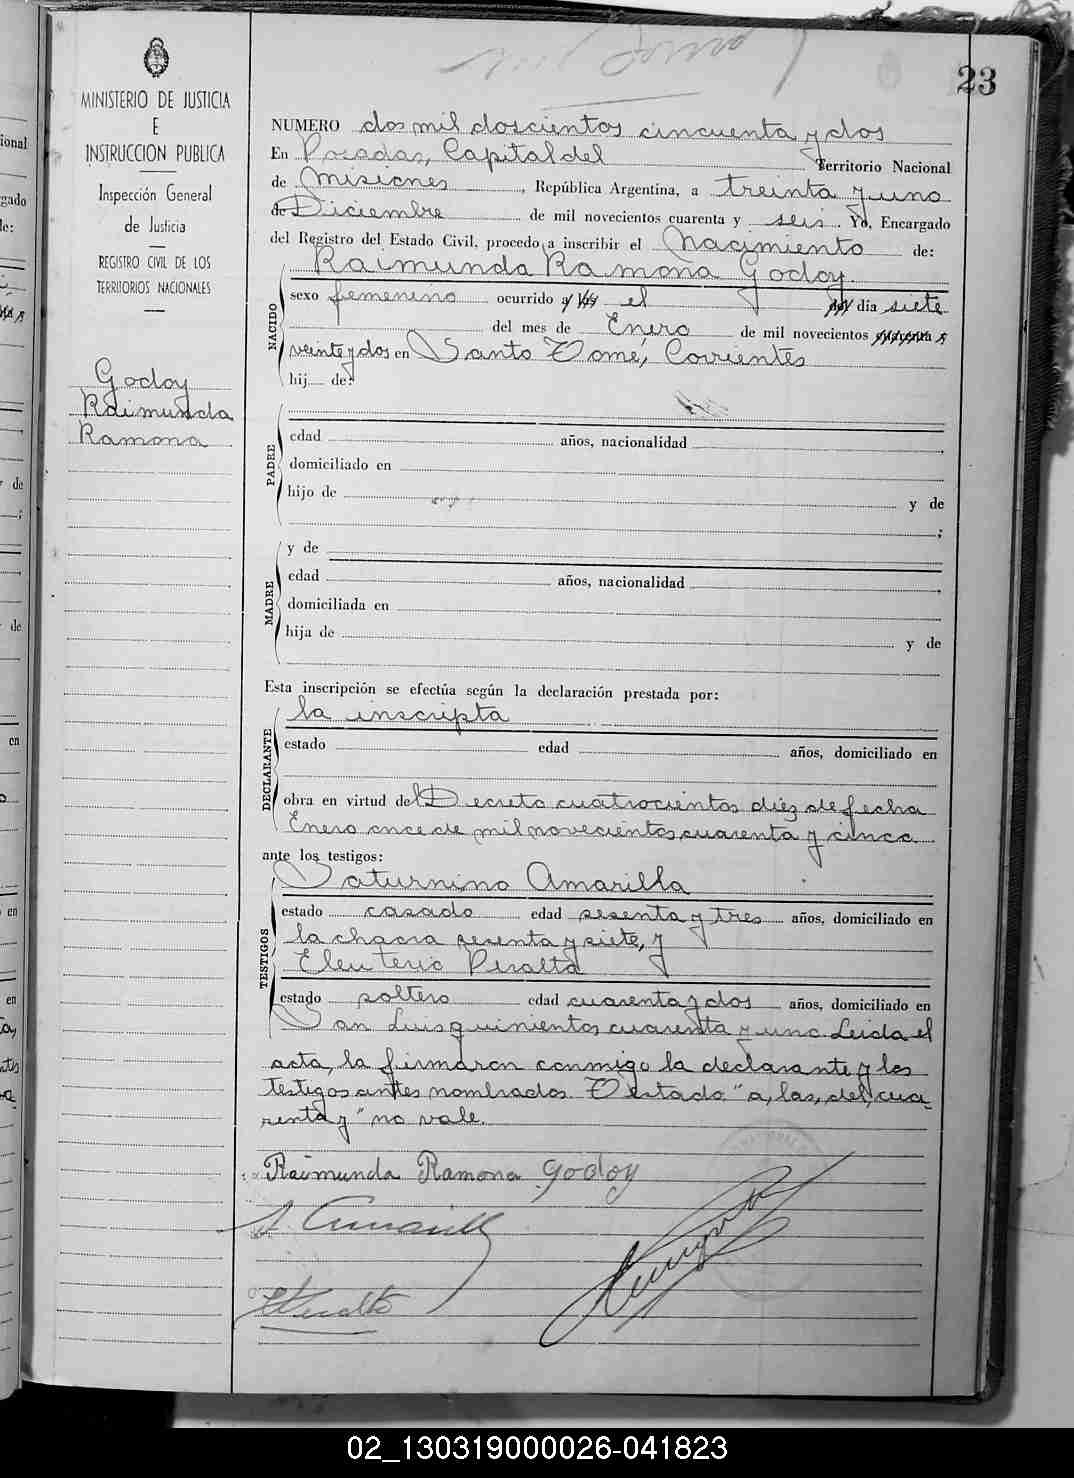 23
MINISTERIO DE JUSTICIA
E
INSTRUCCION PUBLICA
Inspección General
de Justicia
REGISTRO CIVIL DE LOS
TERRITORIOS NACIONALES
Godoy
Raimunda
Ramona
NUMERO dos mil doscientos cincuenta y dos
En Posadas, Capital del Territorio Nacional
de Misiones, República Argentina, a treinta y uno
de Diciembre de mil novecientos cuarenta y seis Yo, Encargado
del Registro del Estado Civil, procedo a inscribir el Nacimiento de:
Raimunda Ramona Godoy
NACIDO
sexo femenino ocurrido a las el del día siete
del mes de Enero de mil novecientos cuarenta y
veinte y dos en Santo Tomé, Corrientes
hij de:
PADRE
edad años, nacionalidad
domiciliado en
hijo de y de
;
MADRE
y de
edad años, nacionalidad
domiciliada en
hija de y de
Esta inscripción se efectúa según la declaración prestada por:
DECLARANTE
la inscripta
estado edad años, domiciliado en
obra en virtud del Decreto cuatrocientos diez de fecha
Enero once de mil novecientos cuarenta y cinco
ante los testigos:
TESTIGOS
Saturnino Amarilla
estado casado edad sesenta y tres años, domiciliado en
la chacra sesenta y siete, y
Eleuterio Peralta
estado soltero edad cuarenta y dos años, domiciliado en
San Luis quinientos cuarenta y uno. Leida el
acta, la firmaron conmigo la declarante y los
testigos antes nombrados. Testado "a, las, del, cua-
renta y" no vale.
Raimunda Ramona Godoy
A. Amarilla
E Peralta
02_130319000026-041823